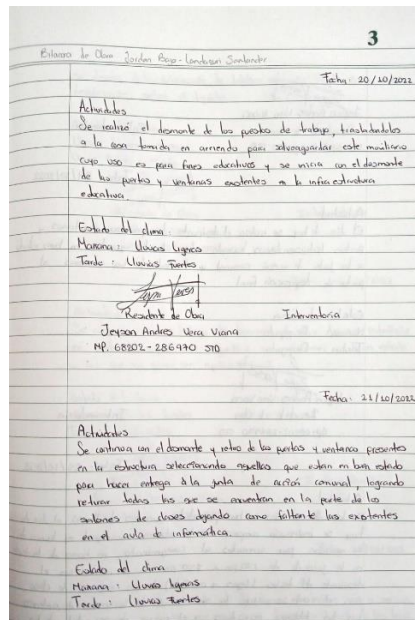 3
Bitacora de Obra Jordan Bajo - Landazuri Santander
Fecha: 20/10/2022
Actividades
Se realizó el desmonte de los puestos de trabajo, trasladandolos
a la casa tomada en arriendo para salvaguardar este mobiliario
cuyo uso es para fines educativos y se inicia con el desmonte
de las puertas y ventanas existentes en la infraestructura
educativa.
Estado del clima
Mañana: Lluvias Ligeras
Tarde: Lluvias Fuertes
Residente de Obra Interventoria
Jeyson Andres Vera Viana
MP. 68202-286970 STD
Fecha: 21/10/2022
Actividades
Se continua con el desmonte y retiro de las puertas y ventanas presentes
en la estructura seleccionando aquellas que estan en buen estado
para hacer entrega a la junta de acción comunal, logrando
retirar todas las que se encuentran en la parte de los
salones de clases dejando como faltante las existentes
en el aula de informática.
Estado del clima
Mañana: Lluvias ligeras
Tarde: Lluvias Fuertes.